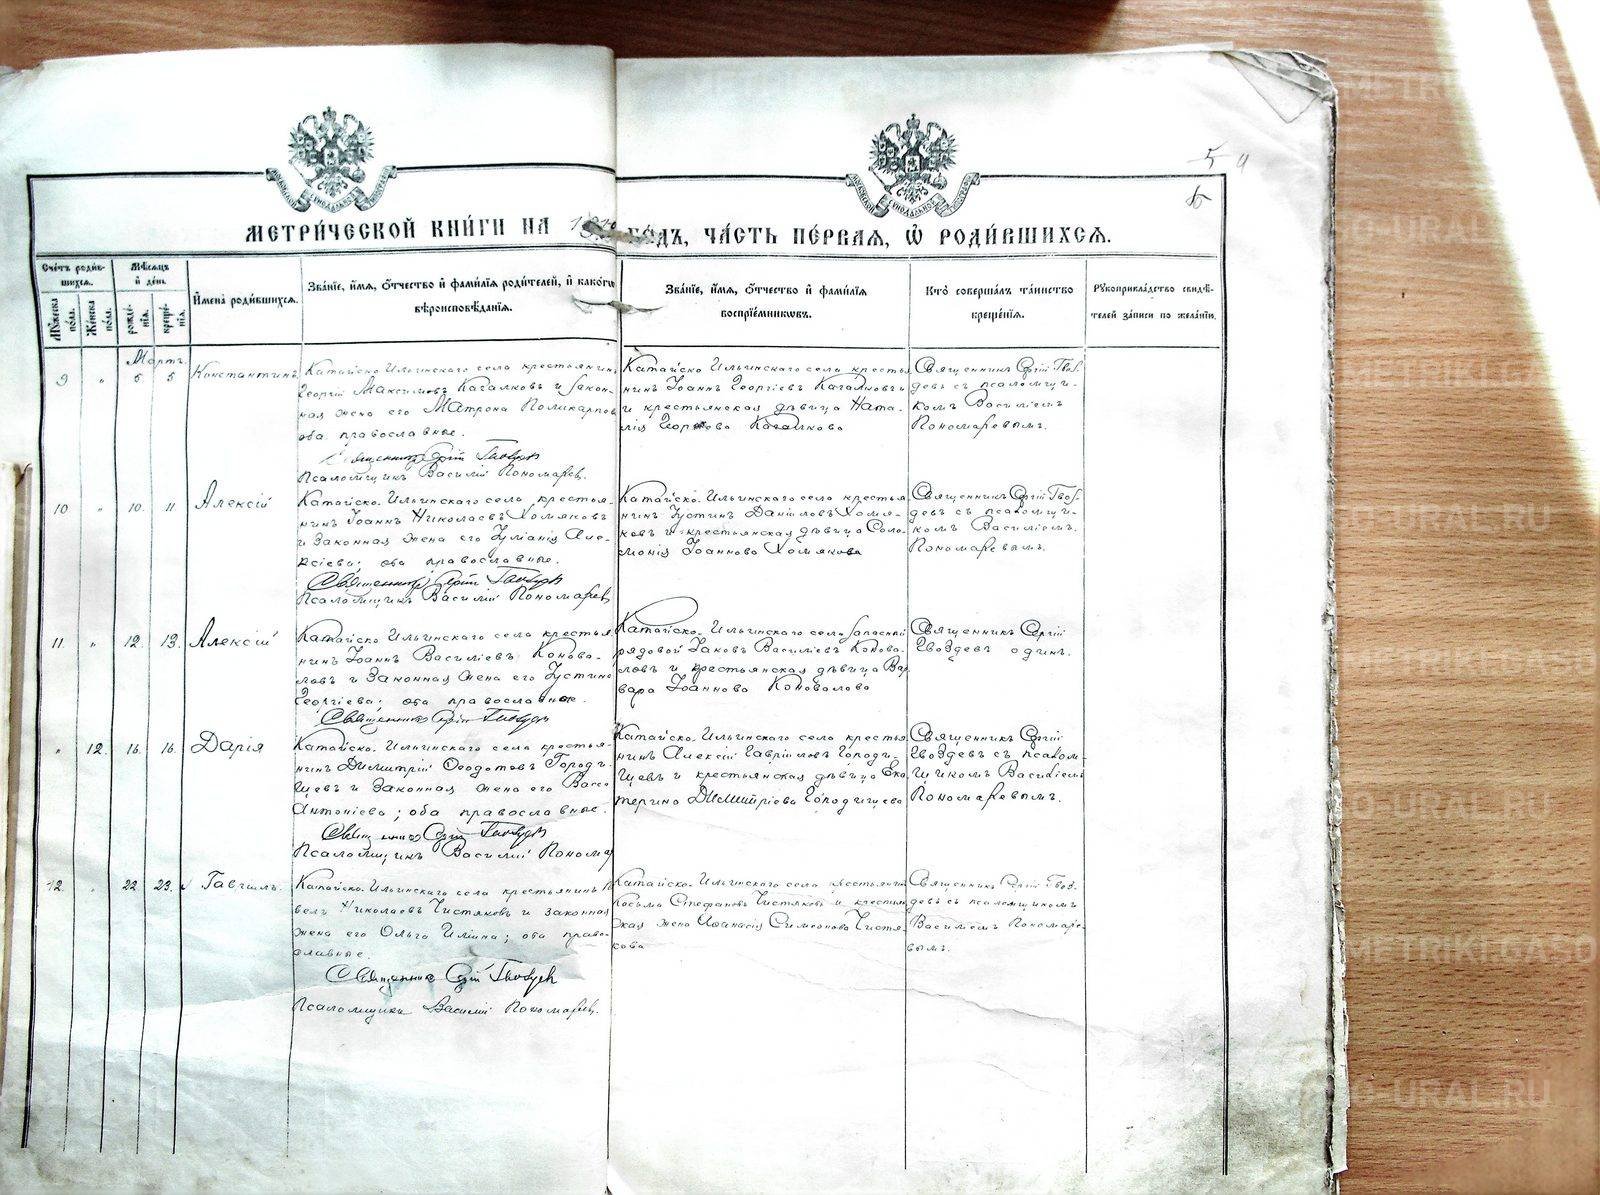 МЕТРИ́ЧЕСКОЙ КНИ́ГИ НА ГО́ДЪ, ЧА́СТЬ ПЕ́РВАЯ, Ѡ҆ РОДИ́ВШИХСѦ.
5
Сче́тъ роди́в-
шихсѧ.
Мѹ́жеска по́ла.
Же́нска по́ла.
Мѣ́сѧцъ
и҆ де́нь.
рожде́-
нїѧ.
креще́-
нїѧ.
И҆мена̀ роди́вшихсѧ.
Зва́нїе, и҆́мѧ, ѻ҆́тчество и҆ фами́лїѧ роди́телей, и҆ како́гѡ
вѣроисповѣ́данїѧ.
Зва́нїе, и҆́мѧ, ѻ҆́тчество и҆ фами́лїѧ
воспрїе́мникѡвъ.
Кто̀ соверша́лъ та́инство
креще́нїѧ.
Рꙋкоприкла́дство свидѣ́-
телей за́писи по жела́нїи.
Мартъ.
9 " 5 5 Константинъ
Катайско-Ильинскаго села крестьянинъ
Георгій Максимовъ Качалковъ и закон-
ная жена его Матрона Поликарпов
оба православные.
Священникъ Сергій Гвоздевъ
Псаломщикъ Василій Пономарев.
Катайско-Ильинскаго села кресть
нинъ Іоаннъ Георгіевъ Качалковъ
и крестьянская дѣвица Ната-
лія Качалкова
Священникъ Сергій Гвоз-
девъ съ псаломщи-
комъ Василіемъ
Пономаревымъ.
10 " 10. 11 Алексій
Катайско-Ильинскаго села крестья-
нинъ Іоаннъ Николаевъ Хомяковъ
и законная жена его Іуліанія Але-
ксіева; оба православные.
Священникъ Сергій Гвоздев
Псаломщикъ Василій Пономарев
Катайско-Ильинскаго села крестья
нинъ Іустинъ Даніиловъ Хомя-
ковъ и крестьянская дѣвица Соло-
монія Іоаннова Хомякова
Священникъ Сергій Гвоз-
девъ съ псаломщи-
комъ Василіемъ
Пономаревымъ.
11. " 12. 13. Алексій
Катайско Ильинскаго села крестья
нинъ Іоаннъ Василіевъ Конова-
ловъ и законная жена его Іустина
Георгіева; оба православные.
Священникъ Сергій Гвоздев
Катайско-Ильинскаго села запасный
рядовой Іаковъ Василіевъ Конова-
ловъ и крестьянская дѣвица Вар
вара Іоаннова Коновалова
Священникъ Сергій
Гвоздевъ одинъ.
" 12. 16. 16. Дарія
Катайско-Ильинскаго села крестья-
нинъ Димитрій Ѳеодотовъ Городи-
щевъ и законная жена его Васса
Антоніева; оба православные.
Священникъ Сергій Гвоздев
Псаломщикъ Василій Понома
Катайско-Ильинскаго села крестья
нинъ Алексій Гавріиловъ Городи-
щевъ и крестьянская дѣвица Ека
терина Димитріева Городищева
Священникъ Сергій
Гвоздевъ съ псалом-
щикомъ Василіемъ
Пономаревымъ.
12. " 22 23. Гавріилъ.
Катайско-Ильинскаго села крестьянинъ Па
велъ Николаевъ Чистяковъ и законная
жена его Ольга Иліина; оба право-
славные.
Священникъ Сергій Гвоздев
Псаломщикъ Василій Пономарев.
Катайско-Ильинскаго села крестьянинъ
Косьма Стефановъ Чистяковъ и крестьян
ская жена Аѳанасія Симеонова Чистя-
кова
Священникъ Сергій Гвоз-
девъ съ псаломщикомъ
Василіемъ Пономаре-
вымъ.